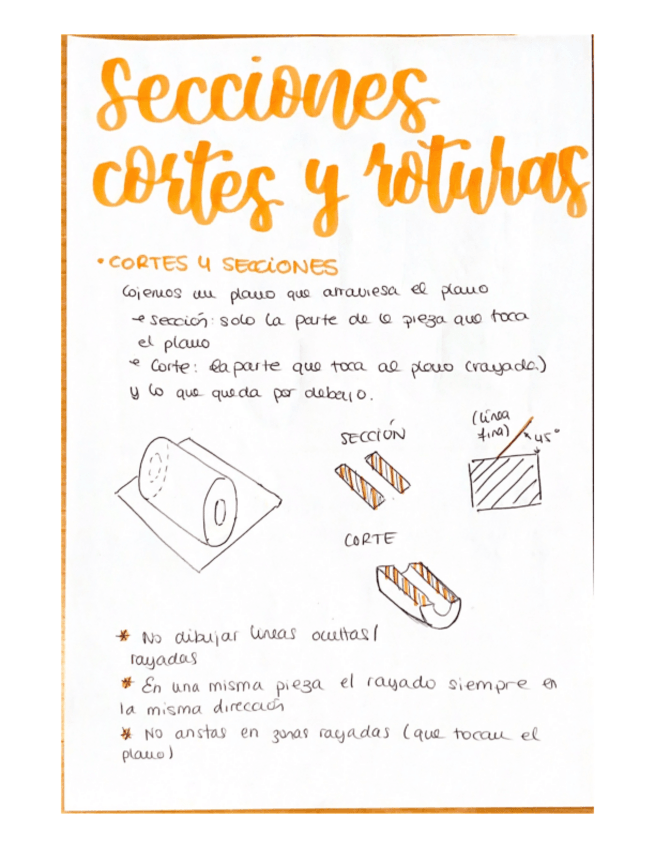 Secciones
cortes y roturas
• CORTES Y SECCIONES
Cojemos un plano que atraviesa el plano
→ Sección: solo la parte de la pieza que toca
el plano
→ Corte: la parte que toca al plano (rayado)
y lo que queda por debajo.
SECCIÓN
(línea
fina)
45°
CORTE
* No dibujar líneas ocultas/
rayadas
* En una misma pieza el rayado siempre en
la misma dirección
* No aristas en zonas rayadas (que tocan el
plano)